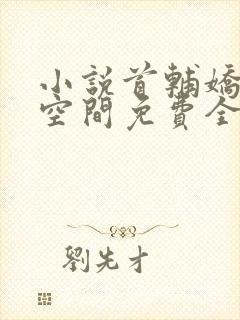 小說首輔嬌
空間免費全
劉先才